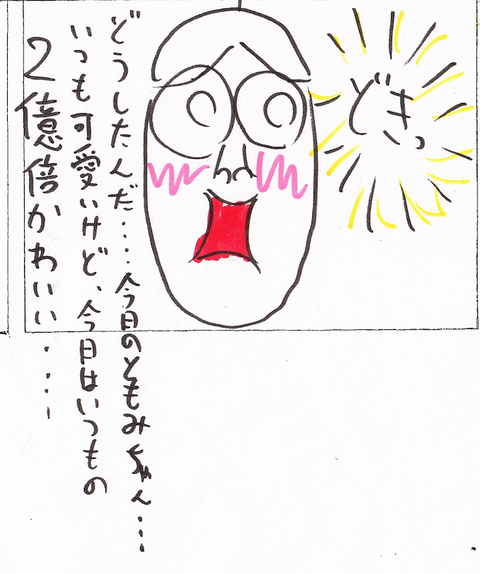 どきっ
どうしたんだ‥‥今日のともみちゃん‥‥
いつも可愛いけど、今日はいつもの
2億倍かわいい‥‥